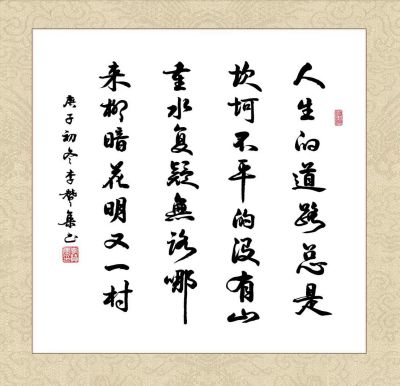 人生的道路总是
坎坷不平的没有山
重水复疑無路哪
来柳暗花明又一村
庚子初冬李